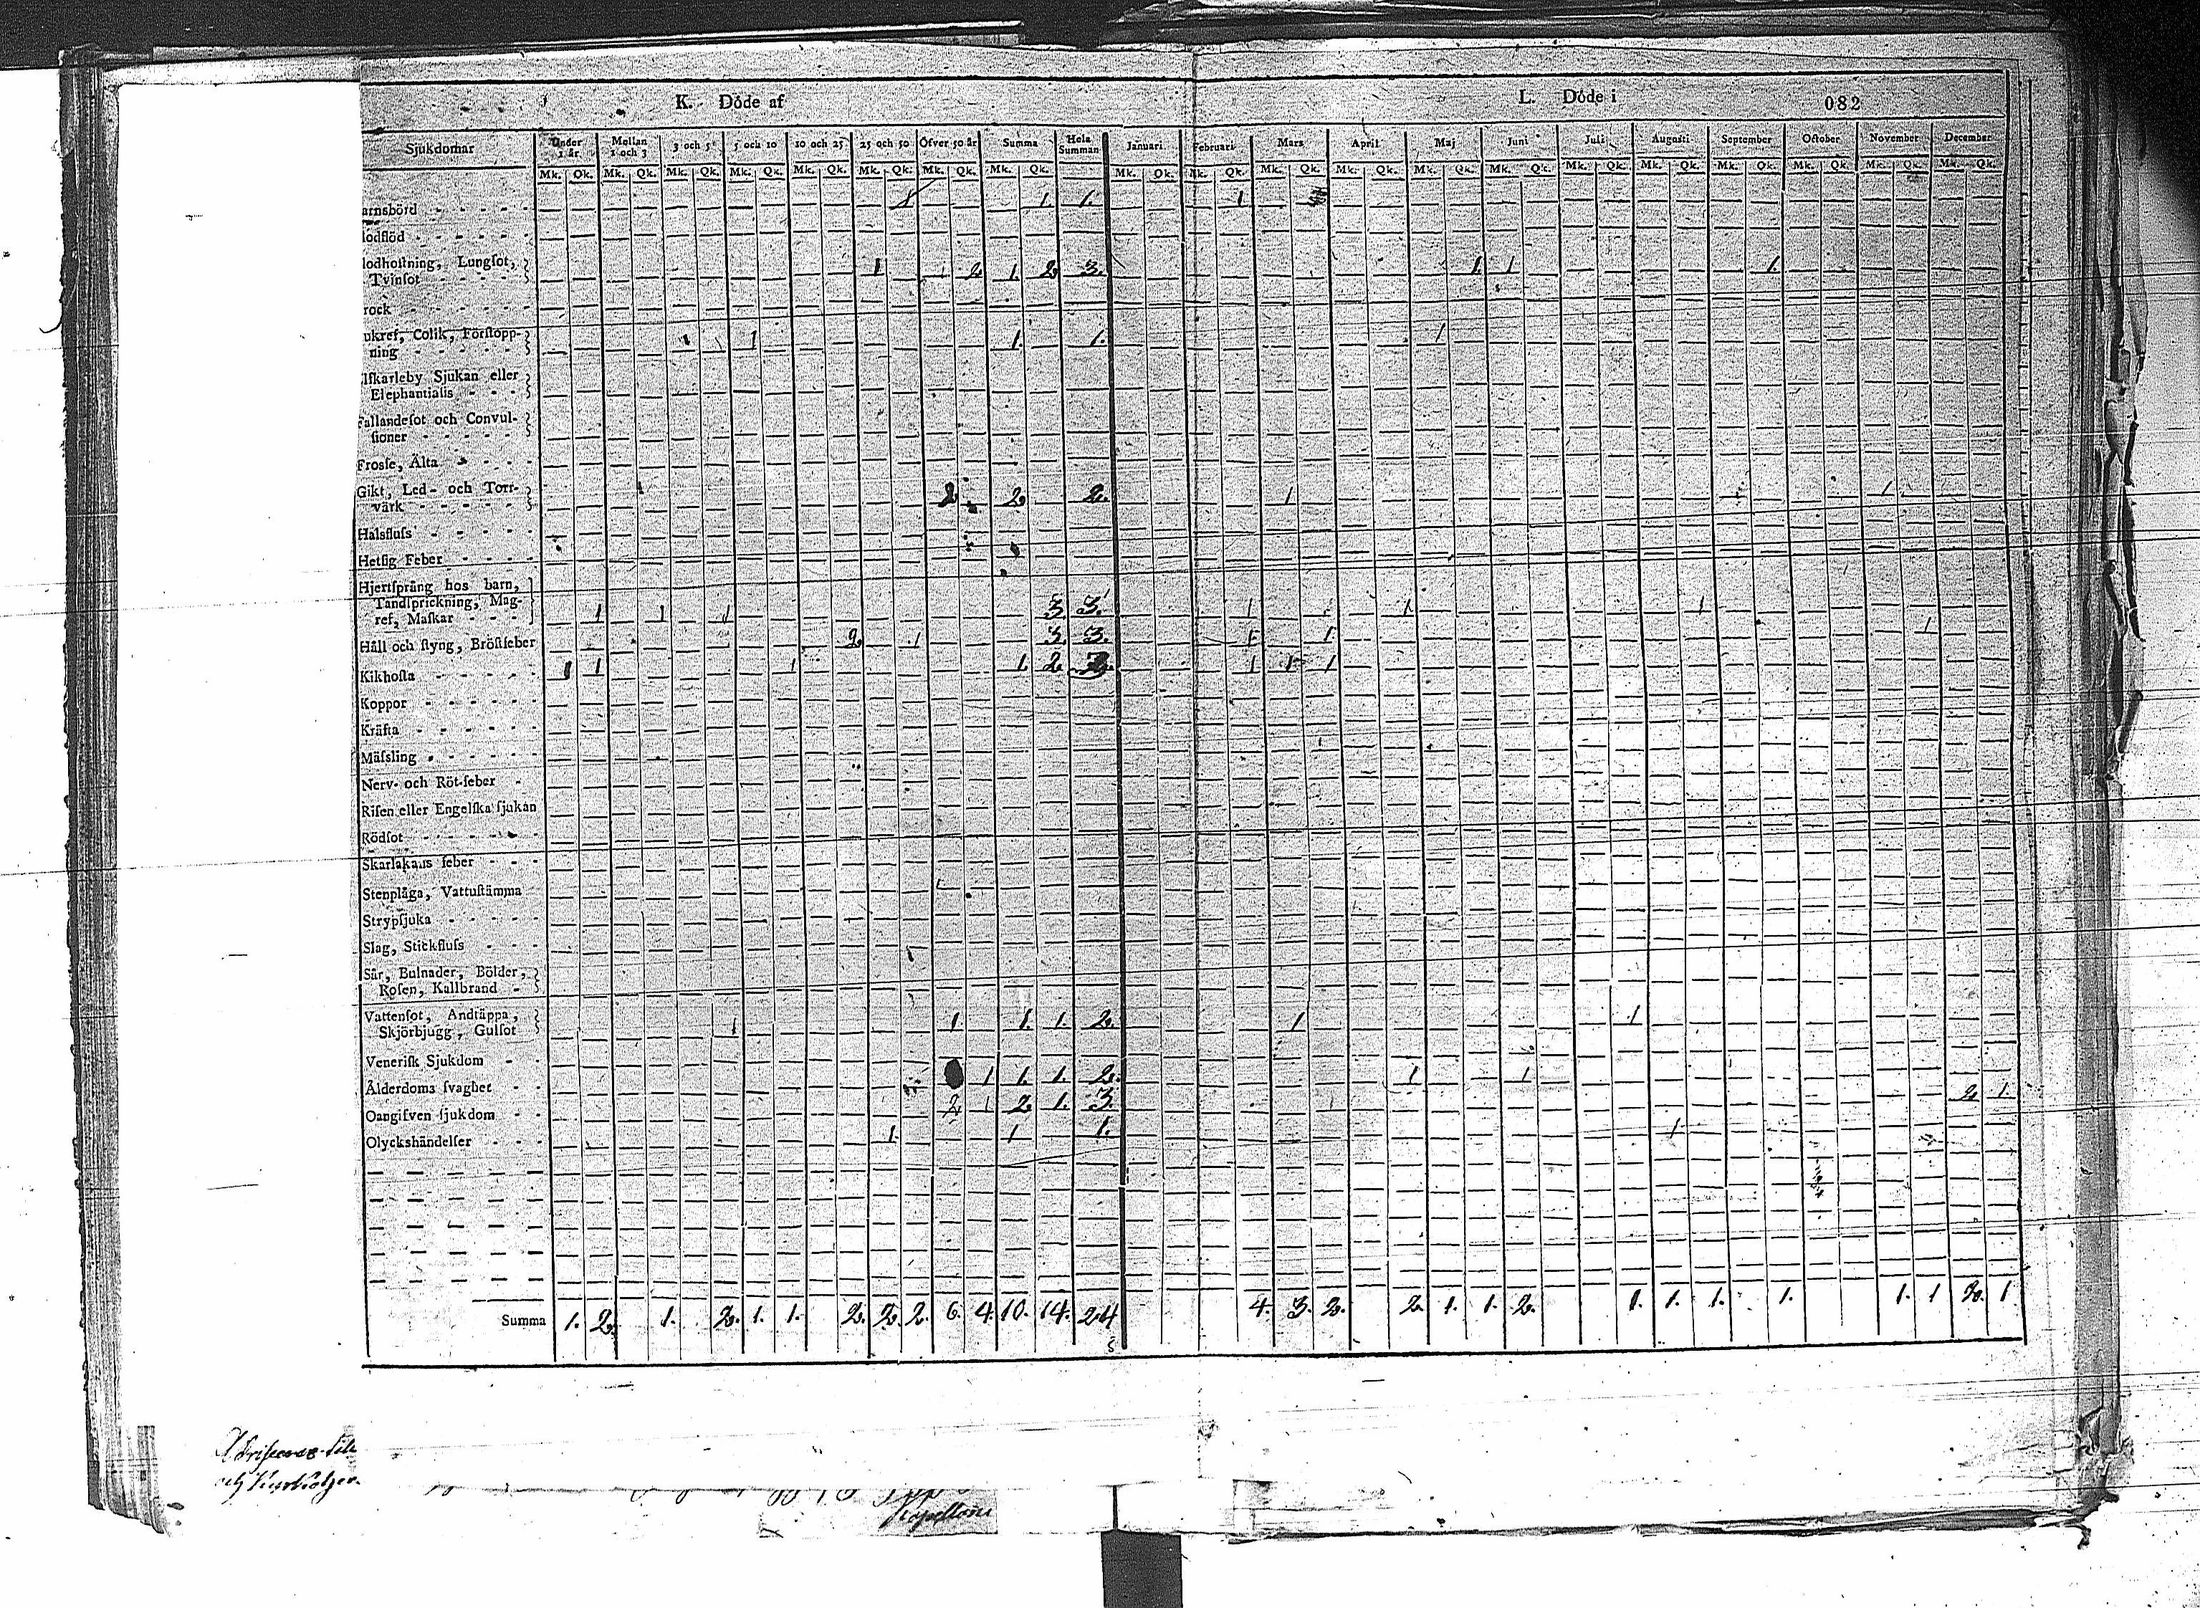 K. Döde af
L. Döde i
082
Sjukdomar | Under 1 år | Mellan 1 och 3 | 3 och 5 | 5 och 10 | 10 och 25 | 25 och 50 | Öfver 50 år | Summa | Hela Summan | Januari | Februari | Mars | April | Maj | Juni | Juli | Augusti | September | October | November | December
Mk. Qk. Mk. Qk. Mk. Qk. Mk. Qk. Mk. Qk. Mk. Qk. Mk. Qk. Mk. Qk. Mk. Qk. Mk. Qk. Mk. Qk. Mk. Qk. Mk. Qk. Mk. Qk. Mk. Qk. Mk. Qk. Mk. Qk. Mk. Qk. Mk. Qk. Mk. Qk.
arnsbörd 1 1. 1. 1
lodflöd
lodhoſtning, Lungſot,
Tvinſot 1 2 1. 2 3. 1. 1 1.
rock
ukref, Colik, Förſtopp-
ning 1 1. 1. 1
lſkarleby Sjukan eller
Elephantiaſis
Fallandeſot och Convul-
ſioner
Frosſe, Älta
Gikt, Led- och Torr-
värk 2 2 2. 1 1
Halsfluſs
Hetſig Feber
Hjertſprång hos barn,
Tandſprickning, Mag-
ref, Maſkar 1 1 1 3. 3. 1 1 1 1
Håll och ſtyng, Bröſtfeber 2. 1 3. 3. 1. 1. 1
Kikhoſta 1 1 1 1. 2. 1 1 1
Koppor
Kräfta
Mäſsling
Nerv- och Röt-feber
Riſen eller Engelſka ſjukan
Rödſot
Skarlakans feber
Stenplåga, Vattuſtämma
Strypſjuka
Slag, Stickfluſs
Sår, Bulnader, Bölder,
Roſen, Kallbrand
Vattenſot, Andtäppa,
Skjörbjugg, Gulſot 1 1 1. 1. 2. 1 1
Veneriſk Sjukdom
Ålderdoms ſvaghet 1 1. 1. 2. 1 1
Oangifven ſjukdom 2 1 2. 1. 3. 2. 1.
Olyckshändelſer 1. 1 1. 1
Summa 1. 2. 1. 2. 1. 1. 2. 2. 2. 6. 4. 10. 14. 24 4. 3. 2. 2. 1. 1. 2. 1. 1. 1. 1. 1. 1 2. 1.
Kapellan